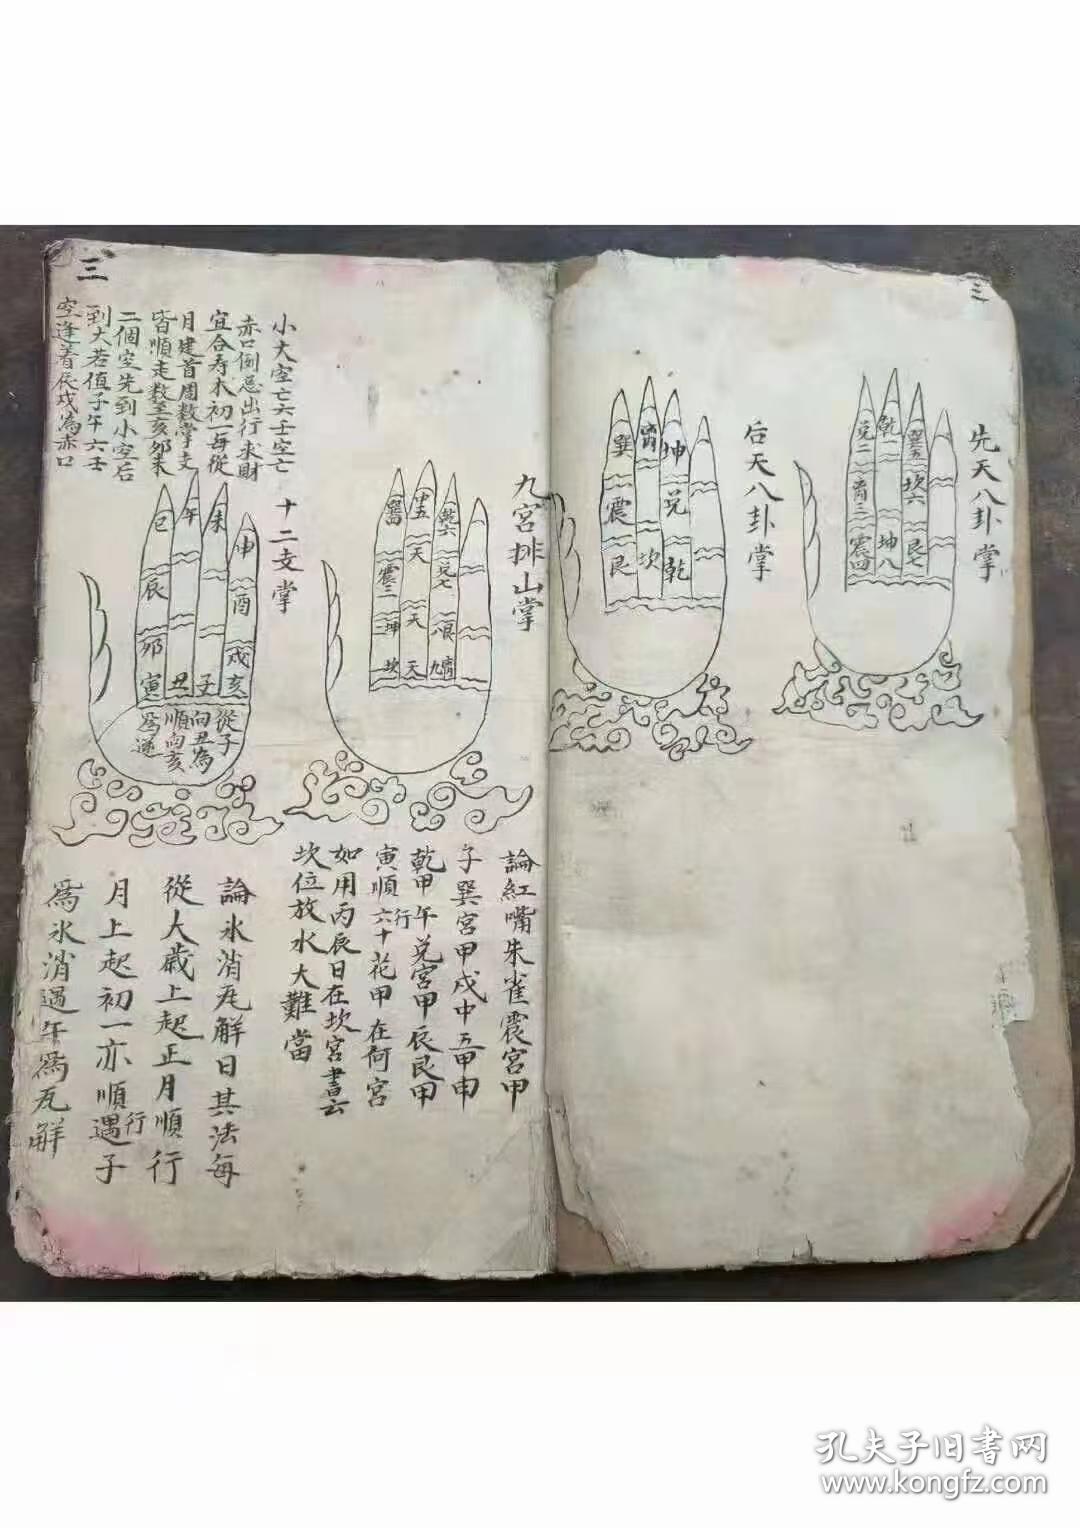 三
先天八卦掌
乾一
兌二
離三
震四
巽五
坎六
艮七
坤八
后天八卦掌
巽
離
坤
震
兌
艮
坎
乾
九宮排山掌
巽四
中五
乾六
震三
天
兌七
坤二
天
艮八
坎一
天
離九
論紅嘴朱雀震宮甲
子巽宮甲戌中五甲申
乾甲午兌宮甲辰艮甲
寅順行六十花甲在何宮
如用丙辰日在坎宮書云
坎位放水大難當
三
小大空亡六壬空亡
赤口例忌出行求財
宜合寿木初一每從
月建首周数掌支
皆順走数至亥夘未
二個空先到小空后
到大若值子午六壬
空逢着辰戌為赤口
十二支掌
巳
午
未
申
辰
酉
夘
戌
寅
丑
子
亥
從子
向丑為
順向亥
為逆
論氷消瓦解日其法每
從大歲上起正月順行
月上起初一亦順行遇子
為氷消遇午為瓦解
孔夫子旧書网
www.kongfz.com